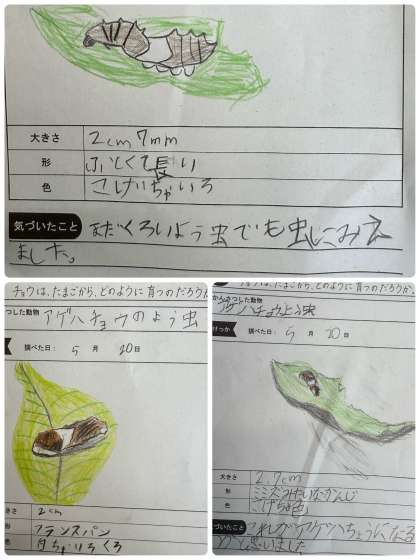 大きさ 2cm 7mm
形 ふとくて長い
色 こげちゃいろ
気づいたこと まだくろいよう虫でも虫にみえ
ました。
チョウは、たまごから、どのように育つのだろうか
つした動物 アゲハチョウのよう虫
調べた日: 5月 20日
大きさ 2cm
形 フランスパン
色 白ちゃいろくろ
チョウは、たまごから、どのように育つのだろうか
かんさつした動物
アゲハチョウよう虫
けっか 調べた日: 5月 20日
大きさ 2.7cm
形 ミミズみたいなかんじ
色 こげちゃ色
づいたこと これがアゲハちょうになる
思いました